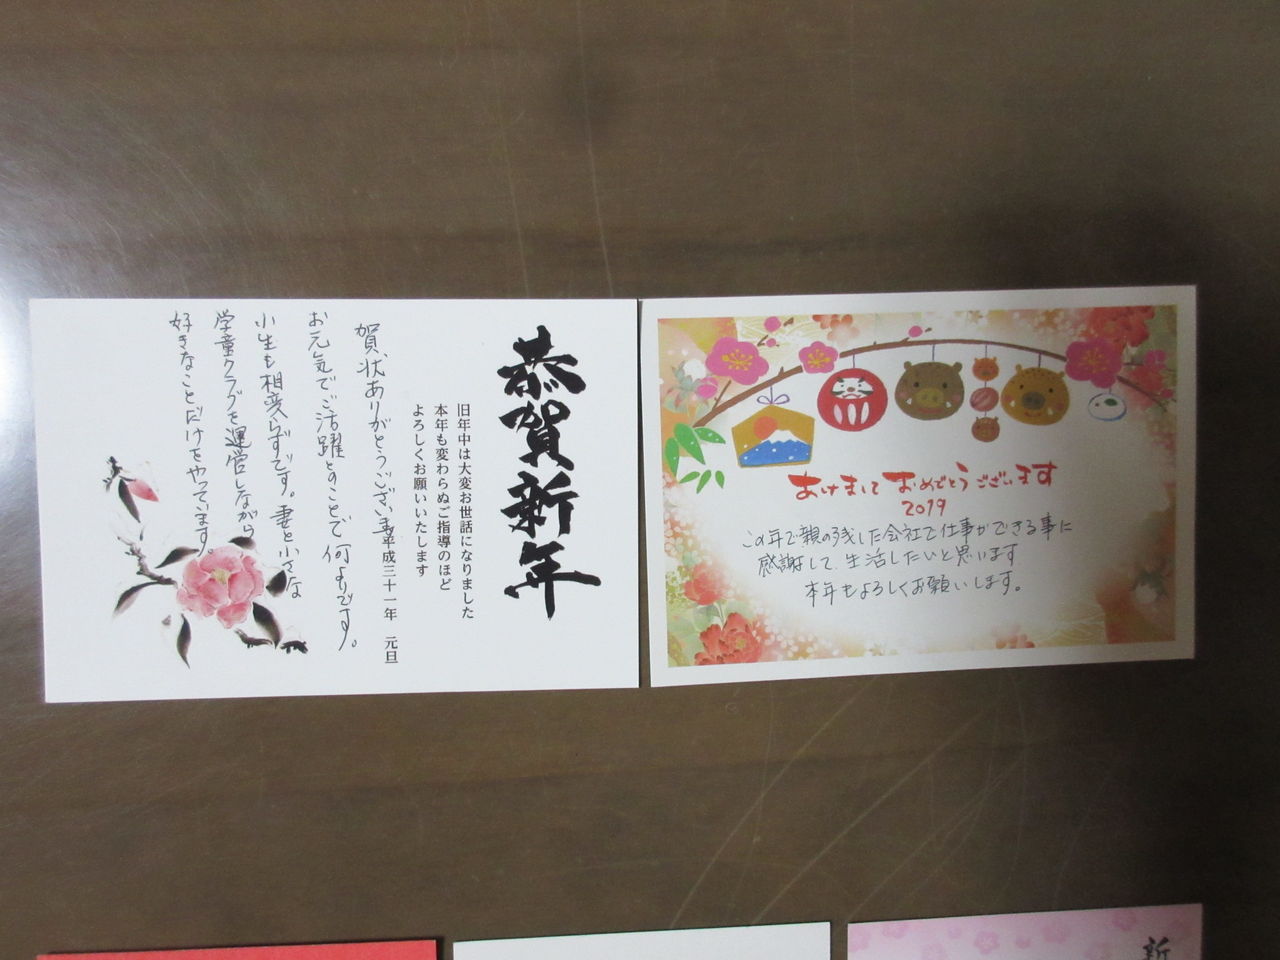 恭賀新年
旧年中は大変お世話になりました
本年も変わらぬご指導のほど
よろしくお願いいたします
平成三十一年 元旦
賀状ありがとうございます
お元気でご活躍とのことで何よりです。
小生も相変らずです。妻と小さな
学童クラブを運営しながら
好きなことだけをやっています
あけまして おめでとうございます
2019
この年で親の残した会社で仕事ができる事に
感謝して、生活したいと思います
本年もよろしくお願いします。
新